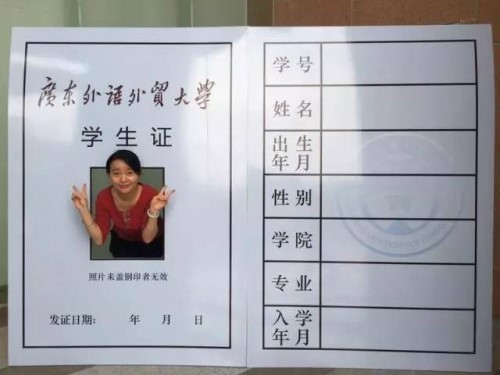 廣东外语外貿大學
学生证
照片未盖钢印者无效
发证日期： 年 月 日
学号
姓名
出生
年月
性别
学院
专业
入学
年月